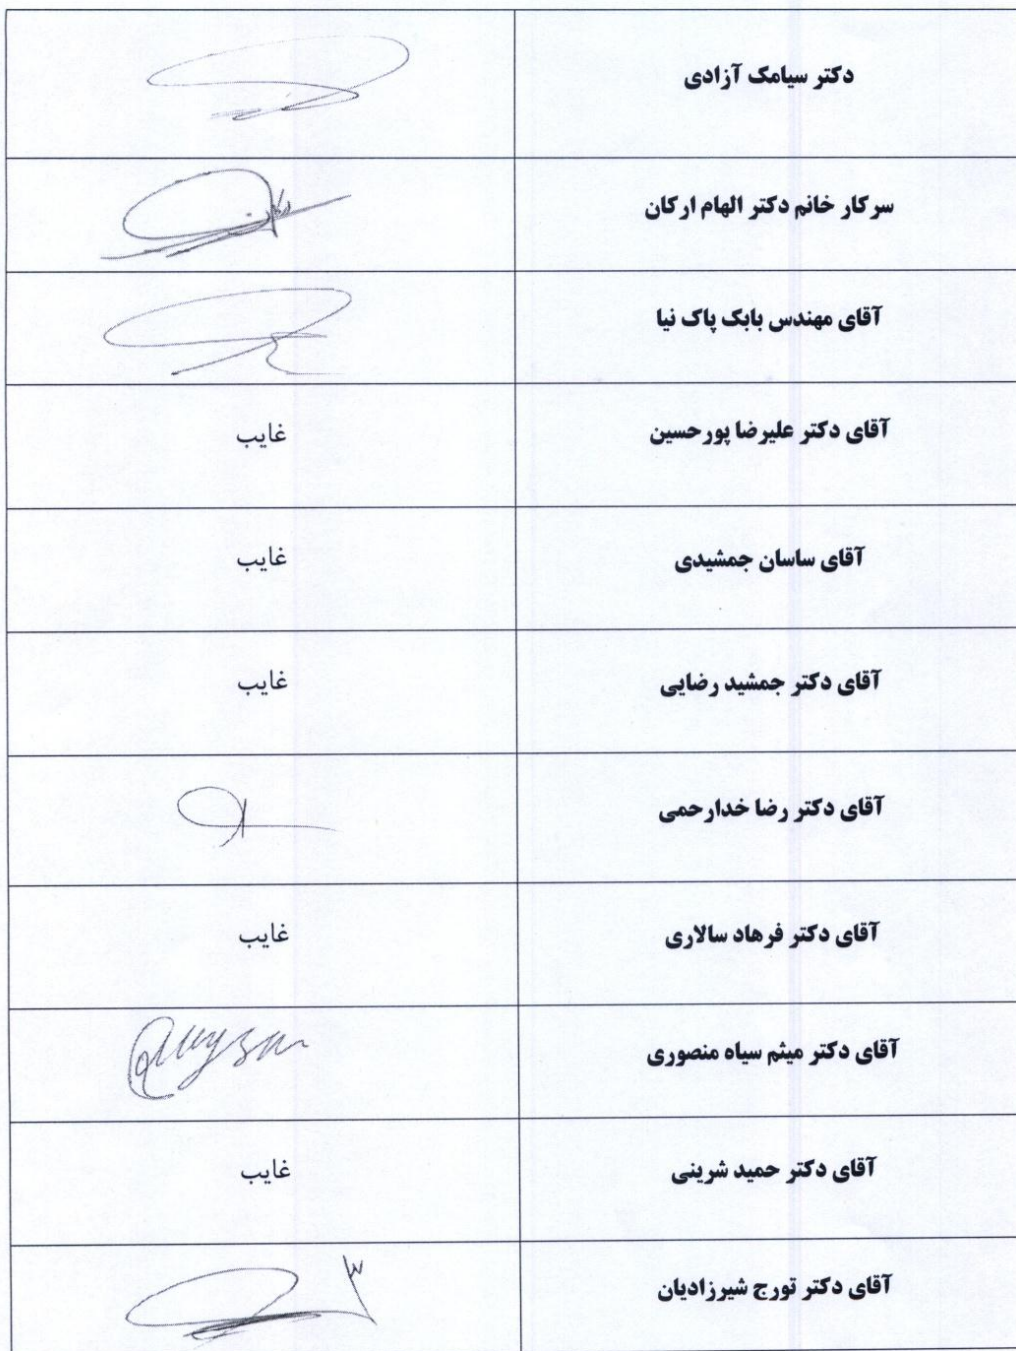 دکتر سیامک آزادی
سرکار خانم دکتر الهام ارکان
آقای مهندس بابک پاک نیا
آقای دکتر علیرضا پورحسین
غایب
آقای ساسان جمشیدی
غایب
آقای دکتر جمشید رضایی
غایب
آقای دکتر رضا خدارحمی
آقای دکتر فرهاد سالاری
غایب
آقای دکتر میثم سیاه منصوری
آقای دکتر حمید شرینی
غایب
آقای دکتر تورج شیرزادیان